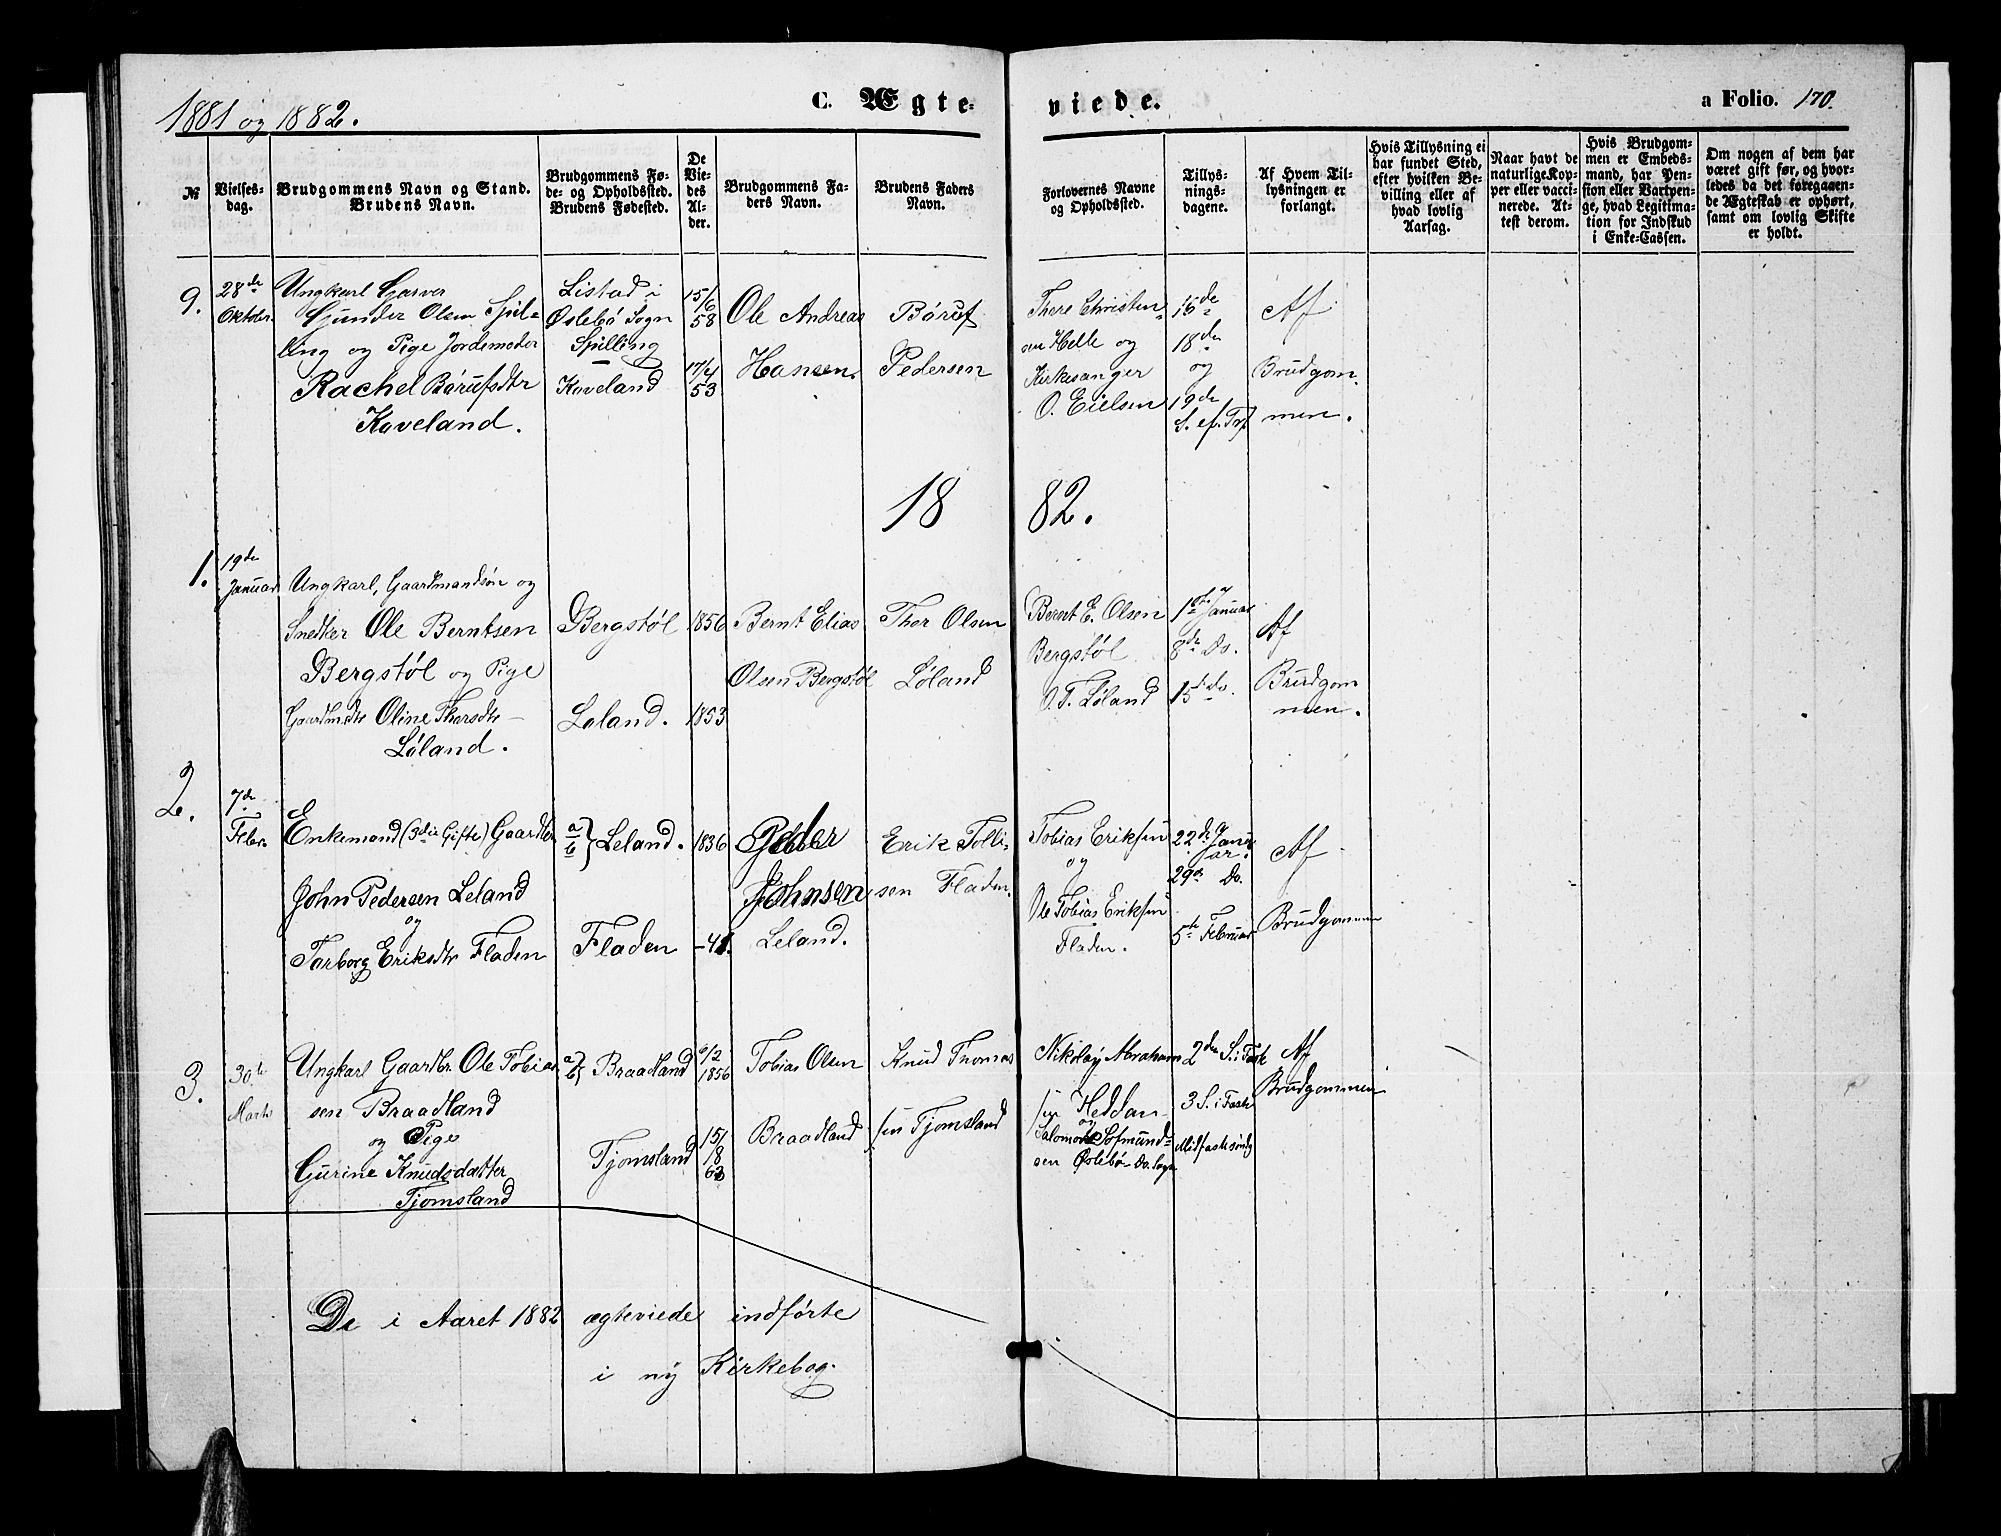 1881 og 1882.
C. Ægte-
viede.
a Folio. 170.
№
Vielses-
dag.
Brudgommens Navn og Stand.
Brudens Navn.
Brudgommens Fø-
de- og Opholdssted.
Brudens Fødested.
De
Vie-
des
Al-
der.
Brudgommens Fa-
ders Navn.
Brudens Faders
Navn.
Forlovernes Navne
og Opholdssted.
Tillys-
nings-
dagene.
Af Hvem Til-
lysningen er
forlangt.
Hvis Tillysning ei
har fundet Sted,
efter hvilken Be-
villing eller af
hvad lovlig
Aarsag.
Naar havt de
naturlige Kop-
per eller vacci-
nerede. At-
test derom.
Hvis Brudgom-
men er Embeds-
mand, har Pen-
sion eller Vartpen-
ge, hvad Legitima-
tion for Indskud
i Enke-Cassen.
Om nogen af dem har
været gift før, og hvor-
ledes da det foregaaen-
de Ægteskab er ophørt,
samt om lovlig Skifte
er holdt.
9.
28de
Oktober
Ungkarl Garver
Gunder Olsen Spil-
ling og Pige Jordemoder
Rachel Børufsdtr
Kaveland.
Listad i
Øslebø Sogn
Spilling
Kaveland
15/
6
58
17/
4
53
Ole Andreas
Hansen.
Børuf
Pedersen
There Christen-
sen Helle og
Kirkesanger
O. Eielsen
16de
18de
og
19de
S. ef. Trf
Af
Brudgom-
men.
18 82.
1.
19de
Januar
Ungkarl, Gaardmandsøn og
Snedker Ole Berntsen
Bergstøl og Pige
Gaardmdtr Oline Thorsdtr
Løland.
Bergstøl
Løland.
1856
1853
Bernt Elias
Olsen Bergstøl
Thor Olsen
Løland
Berent E. Olsen
Bergstøl
O. T. Løland
1ste Januar
8de Do.
15de do.
Af
Brudgom
men.
2.
7de
Febr.
Enkemand (3die Gifte) Gaardbr
John Pedersen Leland
og
Tarborg Eriksdtr Fladen
a
b } Leland.
Fladen
1836
-41.
Peder
Johnsen
Leland.
Erik Tolli-
sen Fladen.
Tobias Eriksen
og
Ole Tobias Eriksen
Fladen.
22de Janu
ar.
29de Do.
5te Februar
Af
Brudgommen
3.
30te
Marts
Ungkarl Gaardbr. Ole Tobias-
sen Braadland
og Pige
Gurine Knudsdatter
Tjomsland
a
b } Braadland
Tjomsland
6/2
1856
15/
8
63
Tobias Olsen
Braadland
Knud Thomas
sen Tjomsland
Nikolay Abraham
sen Heddan
og
Salomon Sofmund-
sen Øslebø Do. Sogn
2den S. i Faste
3 S. i Faste
Midfastesøndg
Af
Brudgommen
De i Aaret 1882 ægteviede indførte
i ny Kirkebog.